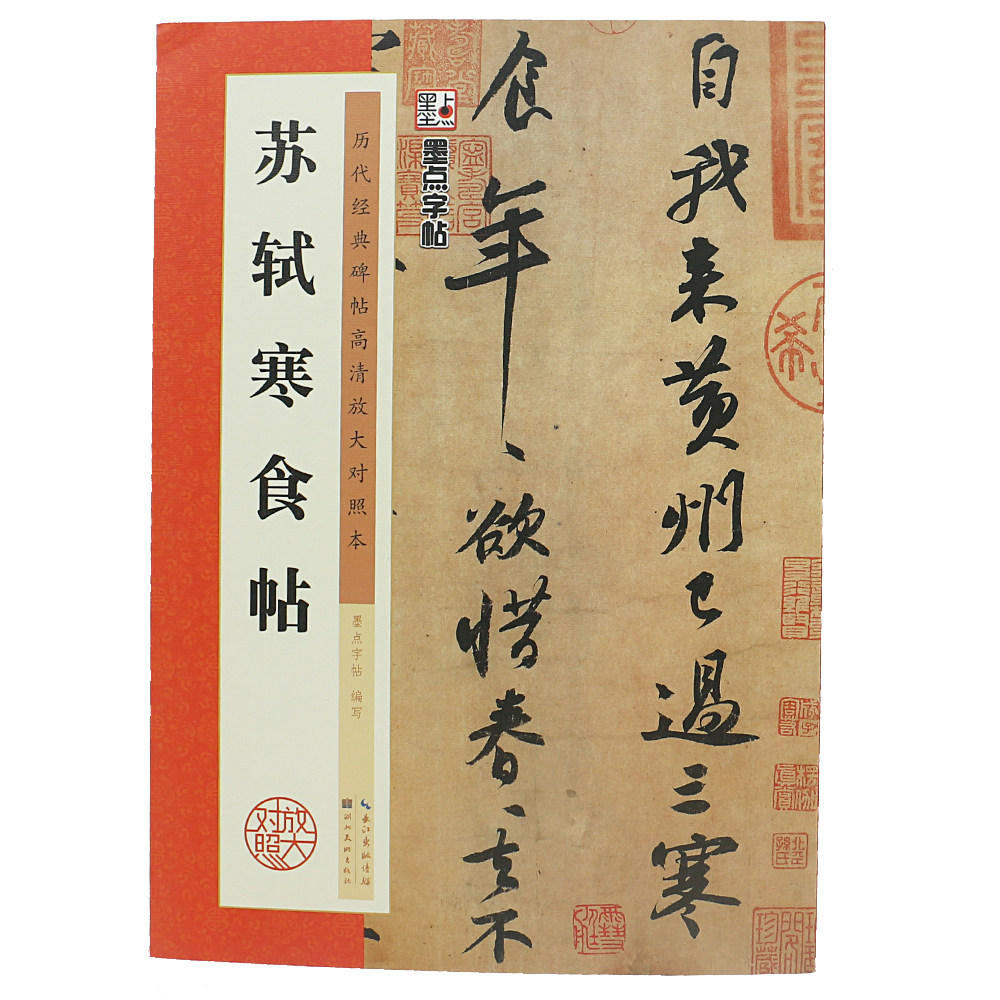 自我来黄州已过三寒
食年〻欲惜春〻去不
墨点
墨点字帖
历代经典碑帖高清放大对照本
墨点字帖 编写
长江出版传媒
湖北美术出版社
苏轼寒食帖
放大对照